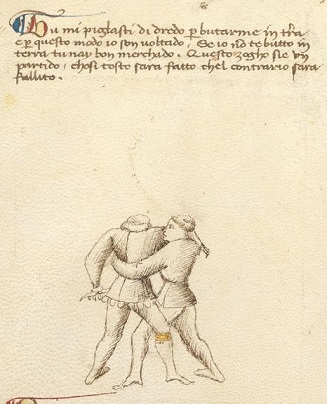 Tu mi piglasti di dredo per butarme in tera
e per questo modo io son voltado, Se io non te butto in
terra tu nay bon merchado. Questo zogho sie un
partido, chosi tosto sara fatto chel contrario sara
fallito.